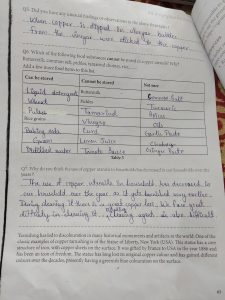 Q5. Did you have any unusual findings or observations in the above Procedure?
When copper is dipped in vinegar bubbles
from the vinegar were sticked to the copper.
Q6. Which of the following food substances cannot be stored in copper utensils? Why?
Buttermilk, common salt, pickles, tamarind chutney, rice...
Add a few more food items to this list.
Can be stored Cannot be stored Not sure
Liquid detergent Buttermilk Common Salt
Wheat Pickles Turmeric
Pulses Tamarind Spices
Rice grains Vinegar Oils
Baking soda Curd
Lemon Juice
Distilled water Tomato Sauce
Table 3
Q7. Why do you think the use of copper utensils in households has decreased in our households over the years?
The use of copper utensils in household has decreased in
our household over the year as it gets tarnished very earlier.
During clearing it there is a great copper loss. We face great
difficulty in cleaning it. Cleaning agents is also difficult
Tarnishing has led to discolouration in many historical monuments and artifacts in the world. One of the
classic examples of copper tarnishing is of the Statue of Liberty, New York (USA). This statue has a core
structure of iron, with copper sheets on the surface. It was gifted by France to USA in the year 1886 and has
been an icon of freedom. The statue has long lost its original copper colour and has gained different
colours over the decades, presently having a green rust-like colouration on the surface.